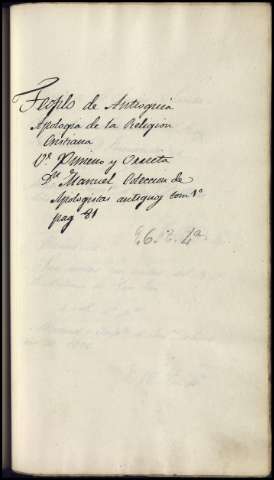 Teofilo de Antioquia
Apologia de la Religion
Cristiana
Vª Ximeno y Urreta
Dn Manuel Coleccion de
Apologistas antiguos tom 1º
pag 81
4ª